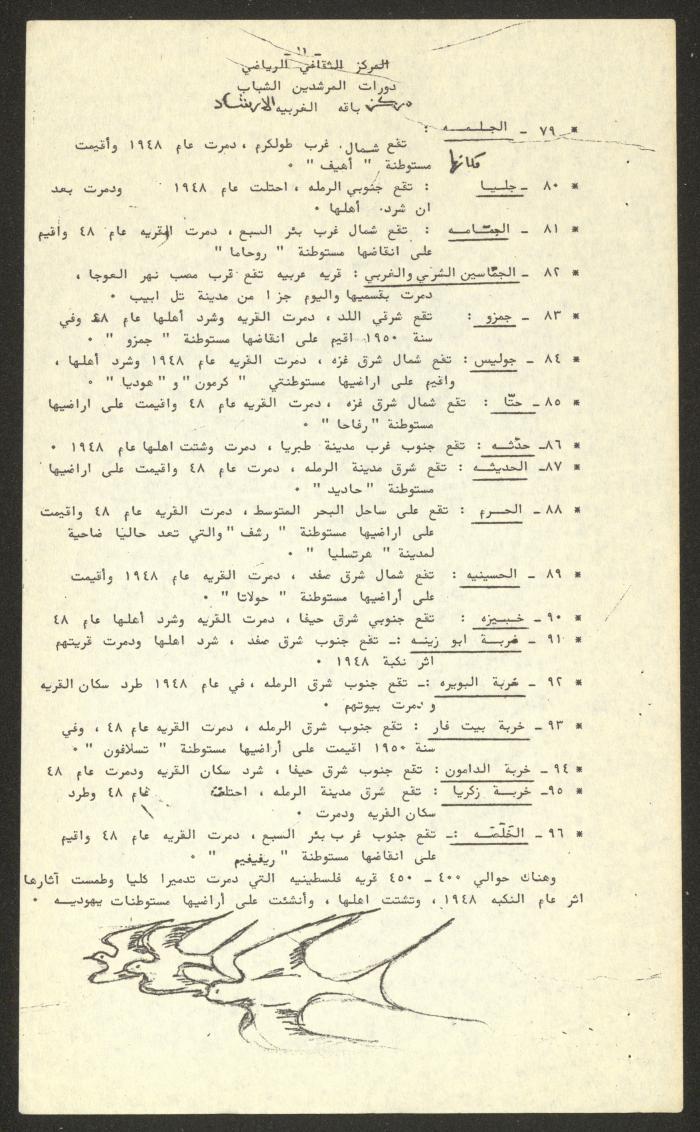 - ١١ -
المركز الثقافي الرياضي
دورات المرشدين الشباب
مركز باقه الغربيه الارشاد
* ٧٩ ـ الجلمـه :
تقع شمال. غرب طولكرم ، دمرت عام ١٩٤٨ وأقيمت
مكانها مستوطنة " أهيف " ٠
* ٨٠ ـ جليـا : تقع جنوبي الرمله ، احتلت عام ١٩٤٨ ودمرت بعد
ان شرد. أهلها ٠
* ٨١ ـ الجمّامـه : تقع شمال غرب بئر السبع ، دمرت القريه عام ٤٨ واقيم
على انقاضها مستوطنة " روحاما "
* ٨٢ ـ الجمّاسين الشرقي والغربي : قريه عربيه تقع قرب مصب نهر العوجا ،
دمرت بقسميها واليوم جزا من مدينة تل ابيب ٠
* ٨٣ ـ جمزو : تقع شرقي اللد ، دمرت القريه وشرد أهلها عام ٤٨ وفي
سنة ١٩٥٠ اقيم على انقاضها مستوطنة " جمزو " ٠
* ٨٤ ـ جوليس : تقع شمال شرق غزه ، دمرت القريه عام ١٩٤٨ وشرد أهلها ،
واقيم على اراضيها مستوطنتي " كرمون " و " هوديا " ٠
* ٨٥ ـ حتّا : تقع شمال شرق غزه ، دمرت القريه عام ٤٨ واقيمت على اراضيها
مستوطنة " رفاحا " ٠
* ٨٦ـ حدّثـه : تقع جنوب غرب مدينة طبريا ، دمرت وشتت اهلها عام ١٩٤٨ ٠
* ٨٧ـ الحديثـه : تقع شرق مدينة الرمله ، دمرت عام ٤٨ واقيمت على اراضيها
مستوطنة " حاديد " ٠
* ٨٨ ـ الحـرم : تقع على ساحل البحر المتوسط ، دمرت القريه عام ٤٨ واقيمت
على اراضيها مستوطنة " رشف " والتي تعد حاليا ضاحية
لمدينة " هرتسليا " ٠
* ٨٩ ـ الحسينيه : تقع شمال شرق صفد ، دمرت القريه عام ١٩٤٨ وأقيمت
على أراضيها مستوطنة " حولاتا " ٠
* ٩٠ـ خـبيزه : تقع جنوبي شرق حيفا ، دمرت القريه وشرد أهلها عام ٤٨
* ٩١ ـ خربـة ابو زينـه :ـ تقع جنوب شرق صفد ، شرد اهلها ودمرت قريتهم
اثر نكبة ١٩٤٨ ٠
* ٩٢ ـ خربة البويره :ـ تقع جنوب شرق الرمله ، في عام ١٩٤٨ طرد سكان القريه
و دمرت بيوتهم ٠
* ٩٣ ـ خربة بيت فار : تقع جنوب شرق الرمله ، دمرت القريه عام ٤٨ ، وفي
سنة ١٩٥٠ اقيمت على أراضيها مستوطنة " تسلافون " ٠
* ٩٤ـ خربة الدامون : تقع جنوب شرق حيفا ، شرد سكان القريه ودمرت عام ٤٨
* ٩٥ـ خربـة زكريا : تقع شرق مدينة الرمله ، احتلت عام ٤٨ وطرد
سكان القريه ودمرت ٠
* ٩٦ ـ الخَلَصَه :ـ تقع جنوب غرب بئر السبع ، دمرت القريه عام ٤٨ واقيم
على انقاضها مستوطنة " ريفيفيم " ٠
وهناك حوالي ٤٠٠ ـ ٤٥٠ قريه فلسطينيه التي دمرت تدميرا كليا وطمست آثارها
اثر عام النكبه ١٩٤٨ ، وتشتت اهلها ، وأنشئت على أراضيها مستوطنات يهوديـه ٠